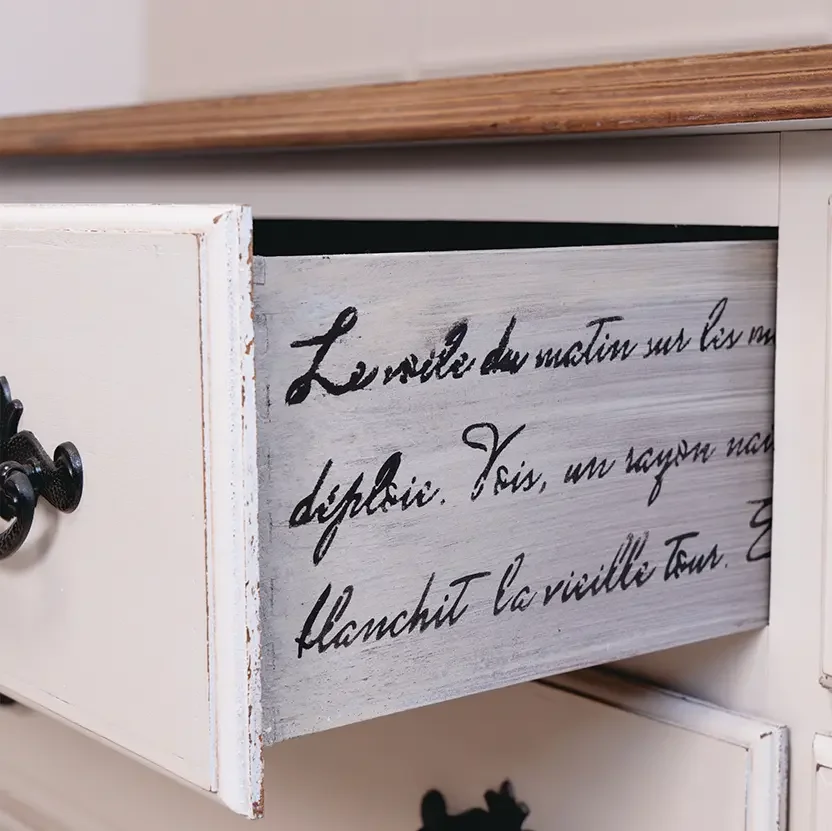 Le voile du matin sur les
déploie. Vois, un rayon
blanchit la vieille tour.